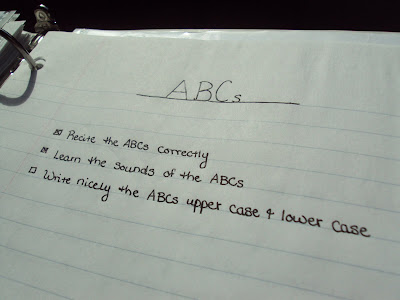 ABCs
☒ Recite the ABCs correctly
☒ Learn the sounds of the ABCs
☐ Write nicely the ABCs upper case & lower case